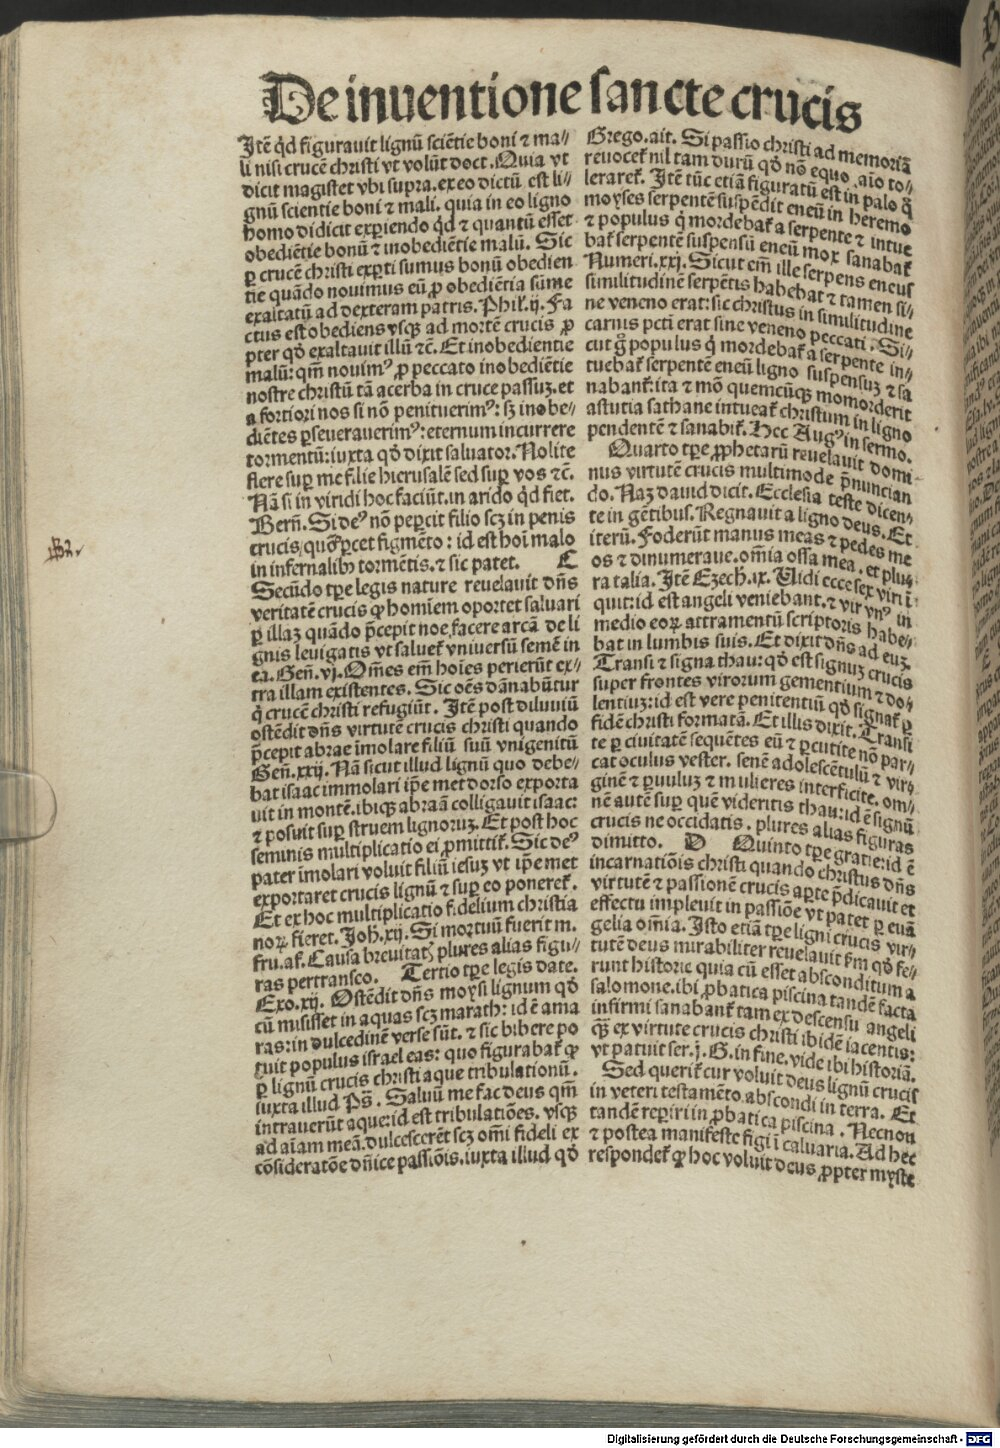 De inuentione sancte crucis
Itē qd̄ figurauit lignū sciētie boni ⁊ ma⸗
li nisi crucē christi vt volūt doct. Quia vt
dicit magister vbi supra. ex eo dictū est li⸗
gnū scientie boni ⁊ mali. quia in eo ligno
homo didicit exꝑiendo qd̄ ⁊ quantū esset
obediētie bonū ⁊ inobediētie malū. Sic
ꝑ crucē christi exꝑti sumus bonū obedien
tie quādo nouimus eū ꝓ obediētia sūme
exaltatū ad dexteram patris. Phil'. ij. Fa
ctus est obediens vsqꝫ ad mortē crucis ꝓ
pter qd̄ exaltauit illū ⁊c̄. Et inobedientie
malū: qm̄ nouimꝰ ꝓ peccato inobediētie
nostre christū tā acerba in cruce passuꝫ. et
a fortiori nos si nō penituerimꝰ: sꝫ inobe⸗
diētes ꝑseuerauerimꝰ: eternum incurrere
tormentū: iuxta qd̄ dixit saluator. Nolite
flere suꝑ me filie hierusalē sed suꝑ vos ⁊c̄.
Nā si in viridi hoc faciūt. in arido qd̄ fiet.
Bern̄. Si deꝰ nō peꝑcit filio scꝫ in penis
crucis, quō ꝑcet figmēto: id est hoī malo
in infernalibꝫ tormētis. ⁊ sic patet. C
Secūdo tꝑe legis nature reuelauit dn̄s
veritatē crucis ꝙ hominem oportet saluari
ꝑ illaꝫ quādo p̄cepit noe facere arcā de li
gnis leuigatis vt saluet' vniuersū semē in
ea. Gen̄. vj. Om̄es em̄ hoīes perierūt ex⸗
tra illam existentes. Sic oēs dānabūtur
q̄ crucē christi refugiūt. Itē post diluuiū
ostēdit dn̄s virtutē crucis christi quando
p̄cepit abrae īmolare filiū suū vnigenitū
Gen̄. xxij. Nā sicut illud lignū quo debe⸗
bat isaac immolari ip̄e met dorso exporta
uit in montē. ibiqꝫ abraā colligauit isaac:
⁊ posuit suꝑ struem lignoruꝫ. Et post hoc
seminis multiplicatio ei ꝓmittit'. Sic deꝰ
pater īmolari voluit filiū iesuꝫ vt ip̄e met
exportaret crucis lignū ⁊ suꝑ eo poneret'.
Et ex hoc multiplicatio fidelium christia
noꝝ fieret. Joh̄. xij. Si mortuū fuerit m.
fru. af. Causa breuitatꝭ plures alias figu⸗
ras pertranseo. Tertio tꝑe legis date.
Exo. xij. Ostēdit dn̄s moysi lignum qd̄
cū misisset in aquas scꝫ marath: id ē ama
ras: in dulcedinē verse sūt. ⁊ sic bibere po
tuit populus israel eas: quo figurabat' ꝙ
ꝑ lignū crucis christi aque tribulationū.
iuxta illud Ps̄. Saluū me fac deus qm̄
intrauerūt aque: id est tribulatiōes. vsqꝫ
ad aīam meā. dulcescerēt scꝫ om̄i fideli ex
cōsideratōe dn̄ice passiōis. iuxta illud qd̄
Grego. ait. Si passio christi ad memoriā
reuocet' nil tam durū qd̄ nō equo aīo to⸗
leraret'. Itē tūc etiā figuratū est in palo q̄
moyses serpentē suspēdit eneū in heremo
⁊ populus q̄ mordebat' a serpente ⁊ intue
bat' serpentē suspensū eneū mox sanabat'
Numeri. xxj. Sicut em̄ ille serpens eneus
similitudinē serpētis habebat ⁊ tamen si⸗
ne veneno erat: sic christus in similitudine
carnis pcti erat sine veneno peccati. Si⸗
cut g̊ populus q̄ mordebat' a serpente in⸗
tuebat' serpentē eneū ligno suspensuꝫ ⁊ sa
nabant': ita ⁊ mō quemcūqꝫ momorderit
astutia sathane intueat' christum in ligno
pendentē ⁊ sanabit'. Hec Augꝰ in sermo.
Quarto tꝑe ꝓphetarū reuelauit domi⸗
nus virtutē crucis multimode p̄nuncian
do. Naꝫ dauid dicit. Ecclesia teste dicen⸗
te in gētibus. Regnauit a ligno deus. Et
iterū. Foderūt manus meas ⁊ pedes me
os ⁊ dinumeraue. om̄ia ossa mea. et plu⸗
ra talia. Itē Ezech̄. ix. Uidi ecce sex viri ī
quit: id est angeli veniebant. ⁊ vir vnꝰ in
medio eoꝝ attramentū scriptoris habe⸗
bat in lumbis suis. Et dixit dn̄s ad euꝫ.
Transi ⁊ signa thau: qd̄ est signuꝫ crucis
super frontes virorum gementium ⁊ do⸗
lentiuꝫ: id est vere penitentiū qd̄ signat' ꝑ
fidē christi formatā. Et illis dixit. Transi
te ꝑ ciuitatē sequētes eū ⁊ ꝑcutite nō par⸗
cat oculus vester. senē adolescētulū ⁊ vir⸗
ginē ⁊ ꝑuuluꝫ ⁊ mulieres interficite. om⸗
nē autē suꝑ quē videritis thau: id ē signū
crucis ne occidatis. plures alias figuras
dimitto. D Quinto tꝑe gratie: id ē
incarnatiōis christi quando christus dn̄s
virtutē ⁊ passionē crucis aꝑte p̄dicauit et
effectu impleuit in passiōe vt patet ꝑ euā
gelia om̄ia. Isto etiā tꝑe ligni crucis vir⸗
tutē deus mirabiliter reuelauit ẜm qd̄ fe⸗
runt historie quia cū esset absconditum a
salomone. ibi ꝓbatica piscina tandē facta
infirmi sanabant' tam ex descensu angeli
qꝫ ex virtute crucis christi ibidē iacentis:
vt patuit ser. j. G. in fine. vide ibi historiā.
Sed querit' cur voluit deus lignū crucis
in veteri testamēto abscondi in terra. Et
tandē reꝑiri in ꝓbatica piscina. Necnon
⁊ postea manifeste figi ī caluaria. Ad hec
respondet' ꝙ hoc voluit deus ꝓpter myste
Digitalisierung gefördert durch die Deutsche Forschungsgemeinschaft - DFG